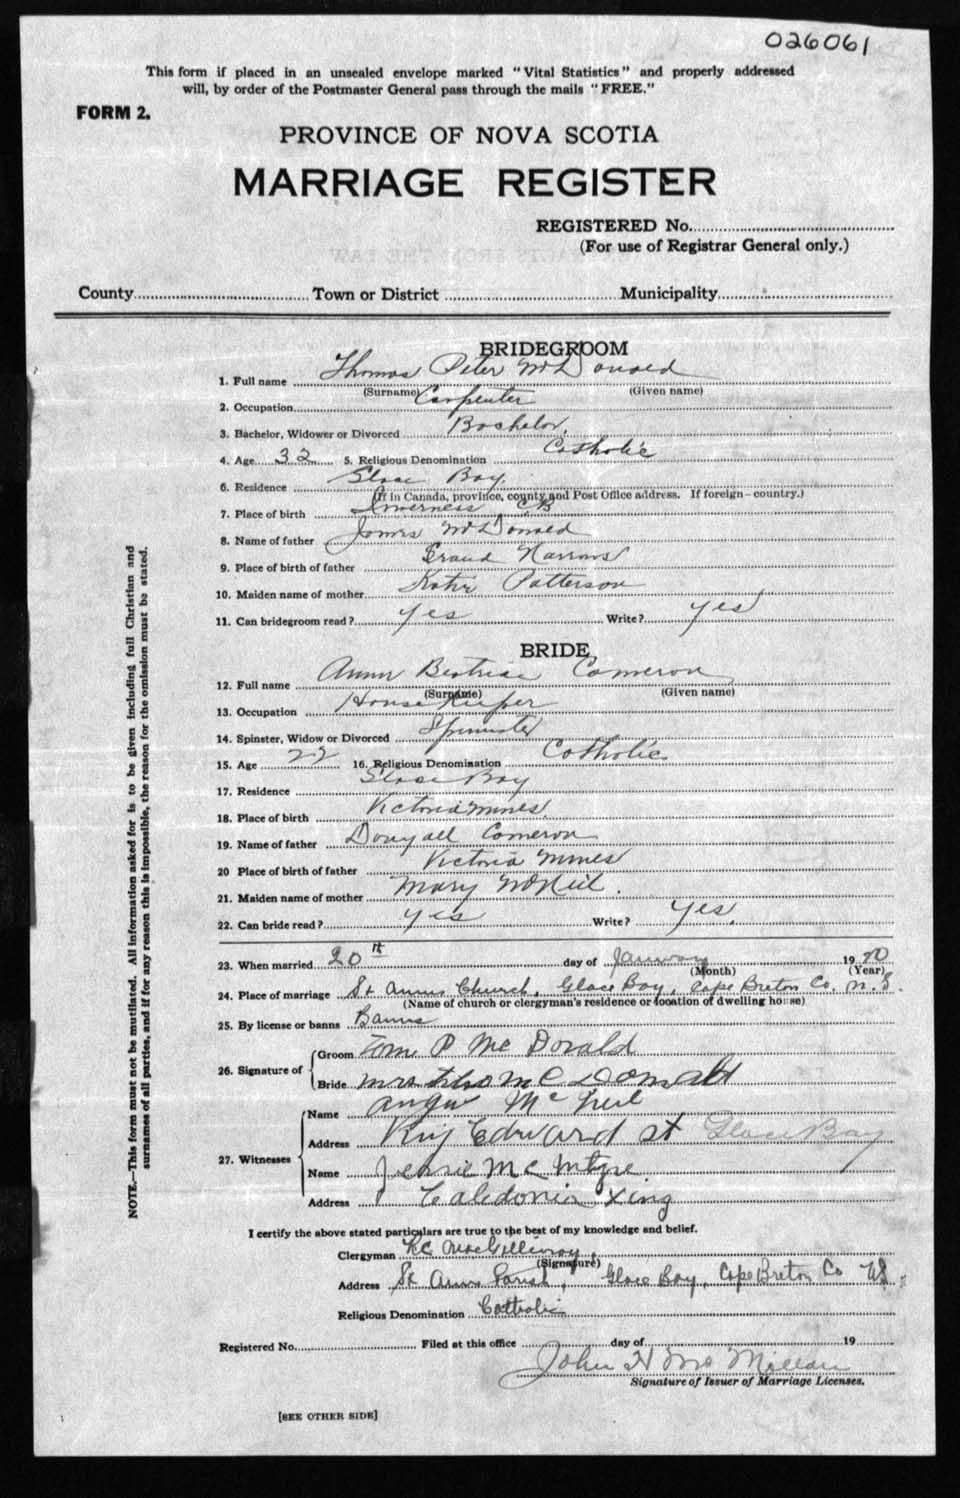 026061
This form if placed in an unsealed envelope marked "Vital Statistics" and properly addressed
will, by order of the Postmaster General pass through the mails "FREE."
FORM 2.
PROVINCE OF NOVA SCOTIA
MARRIAGE REGISTER
REGISTERED No.
(For use of Registrar General only.)
County Town or District Municipality
BRIDEGROOM
1. Full name Thomas Peter McDonald
(Surname) (Given name)
2. Occupation Carpenter
3. Bachelor, Widower or Divorced Bachelor
4. Age 32 5. Religious Denomination Catholic
6. Residence Glace Bay
(If in Canada, province, county and Post Office address. If foreign—country.)
7. Place of birth Inverness CB
8. Name of father James McDonald
9. Place of birth of father Grand Narrows
10. Maiden name of mother Katie Patterson
11. Can bridegroom read? Yes Write? Yes
BRIDE
12. Full name Annie Beatrice Cameron
(Surname) (Given name)
13. Occupation House Keeper
14. Spinster, Widow or Divorced Spinster
15. Age 22 16. Religious Denomination Catholic
17. Residence Glace Bay
18. Place of birth Victoria Mines
19. Name of father Dougall Cameron
20 Place of birth of father Victoria Mines
21. Maiden name of mother Mary McNeil.
22. Can bride read? Yes Write? Yes.
23. When married 20th day of January 19
(Month) (Year)
24. Place of marriage St Anns Church, Glace Bay, Cape Breton Co. N.S.
(Name of church or clergyman's residence or location of dwelling house)
25. By license or banns Banns
26. Signature of
Groom Tom P McDonald
Bride Mrs Tho McDonald
27. Witnesses
Name Angus McNeil
Address King Edward St Glace Bay
Name Jennie McIntyre
Address Caledonia Xing
I certify the above stated particulars are true to the best of my knowledge and belief.
Clergyman MacGillivray
(Signature)
Address St Anns Parish, Glace Bay, Cape Breton Co NS.
Religious Denomination Catholic
Registered No. Filed at this office day of 19
John H McMillan
Signature of Issuer of Marriage Licenses.
[SEE OTHER SIDE]
NOTE.—This form must not be mutilated. All information asked for is to be given including full Christian and
surnames of all parties, and if for any reason this is impossible, the reason for the omission must be stated.